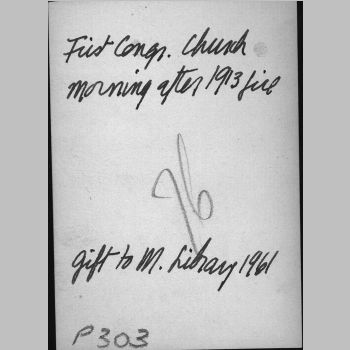 First Congr. Church
morning after 1913 fire
76
gift to M. Library 1961
P303